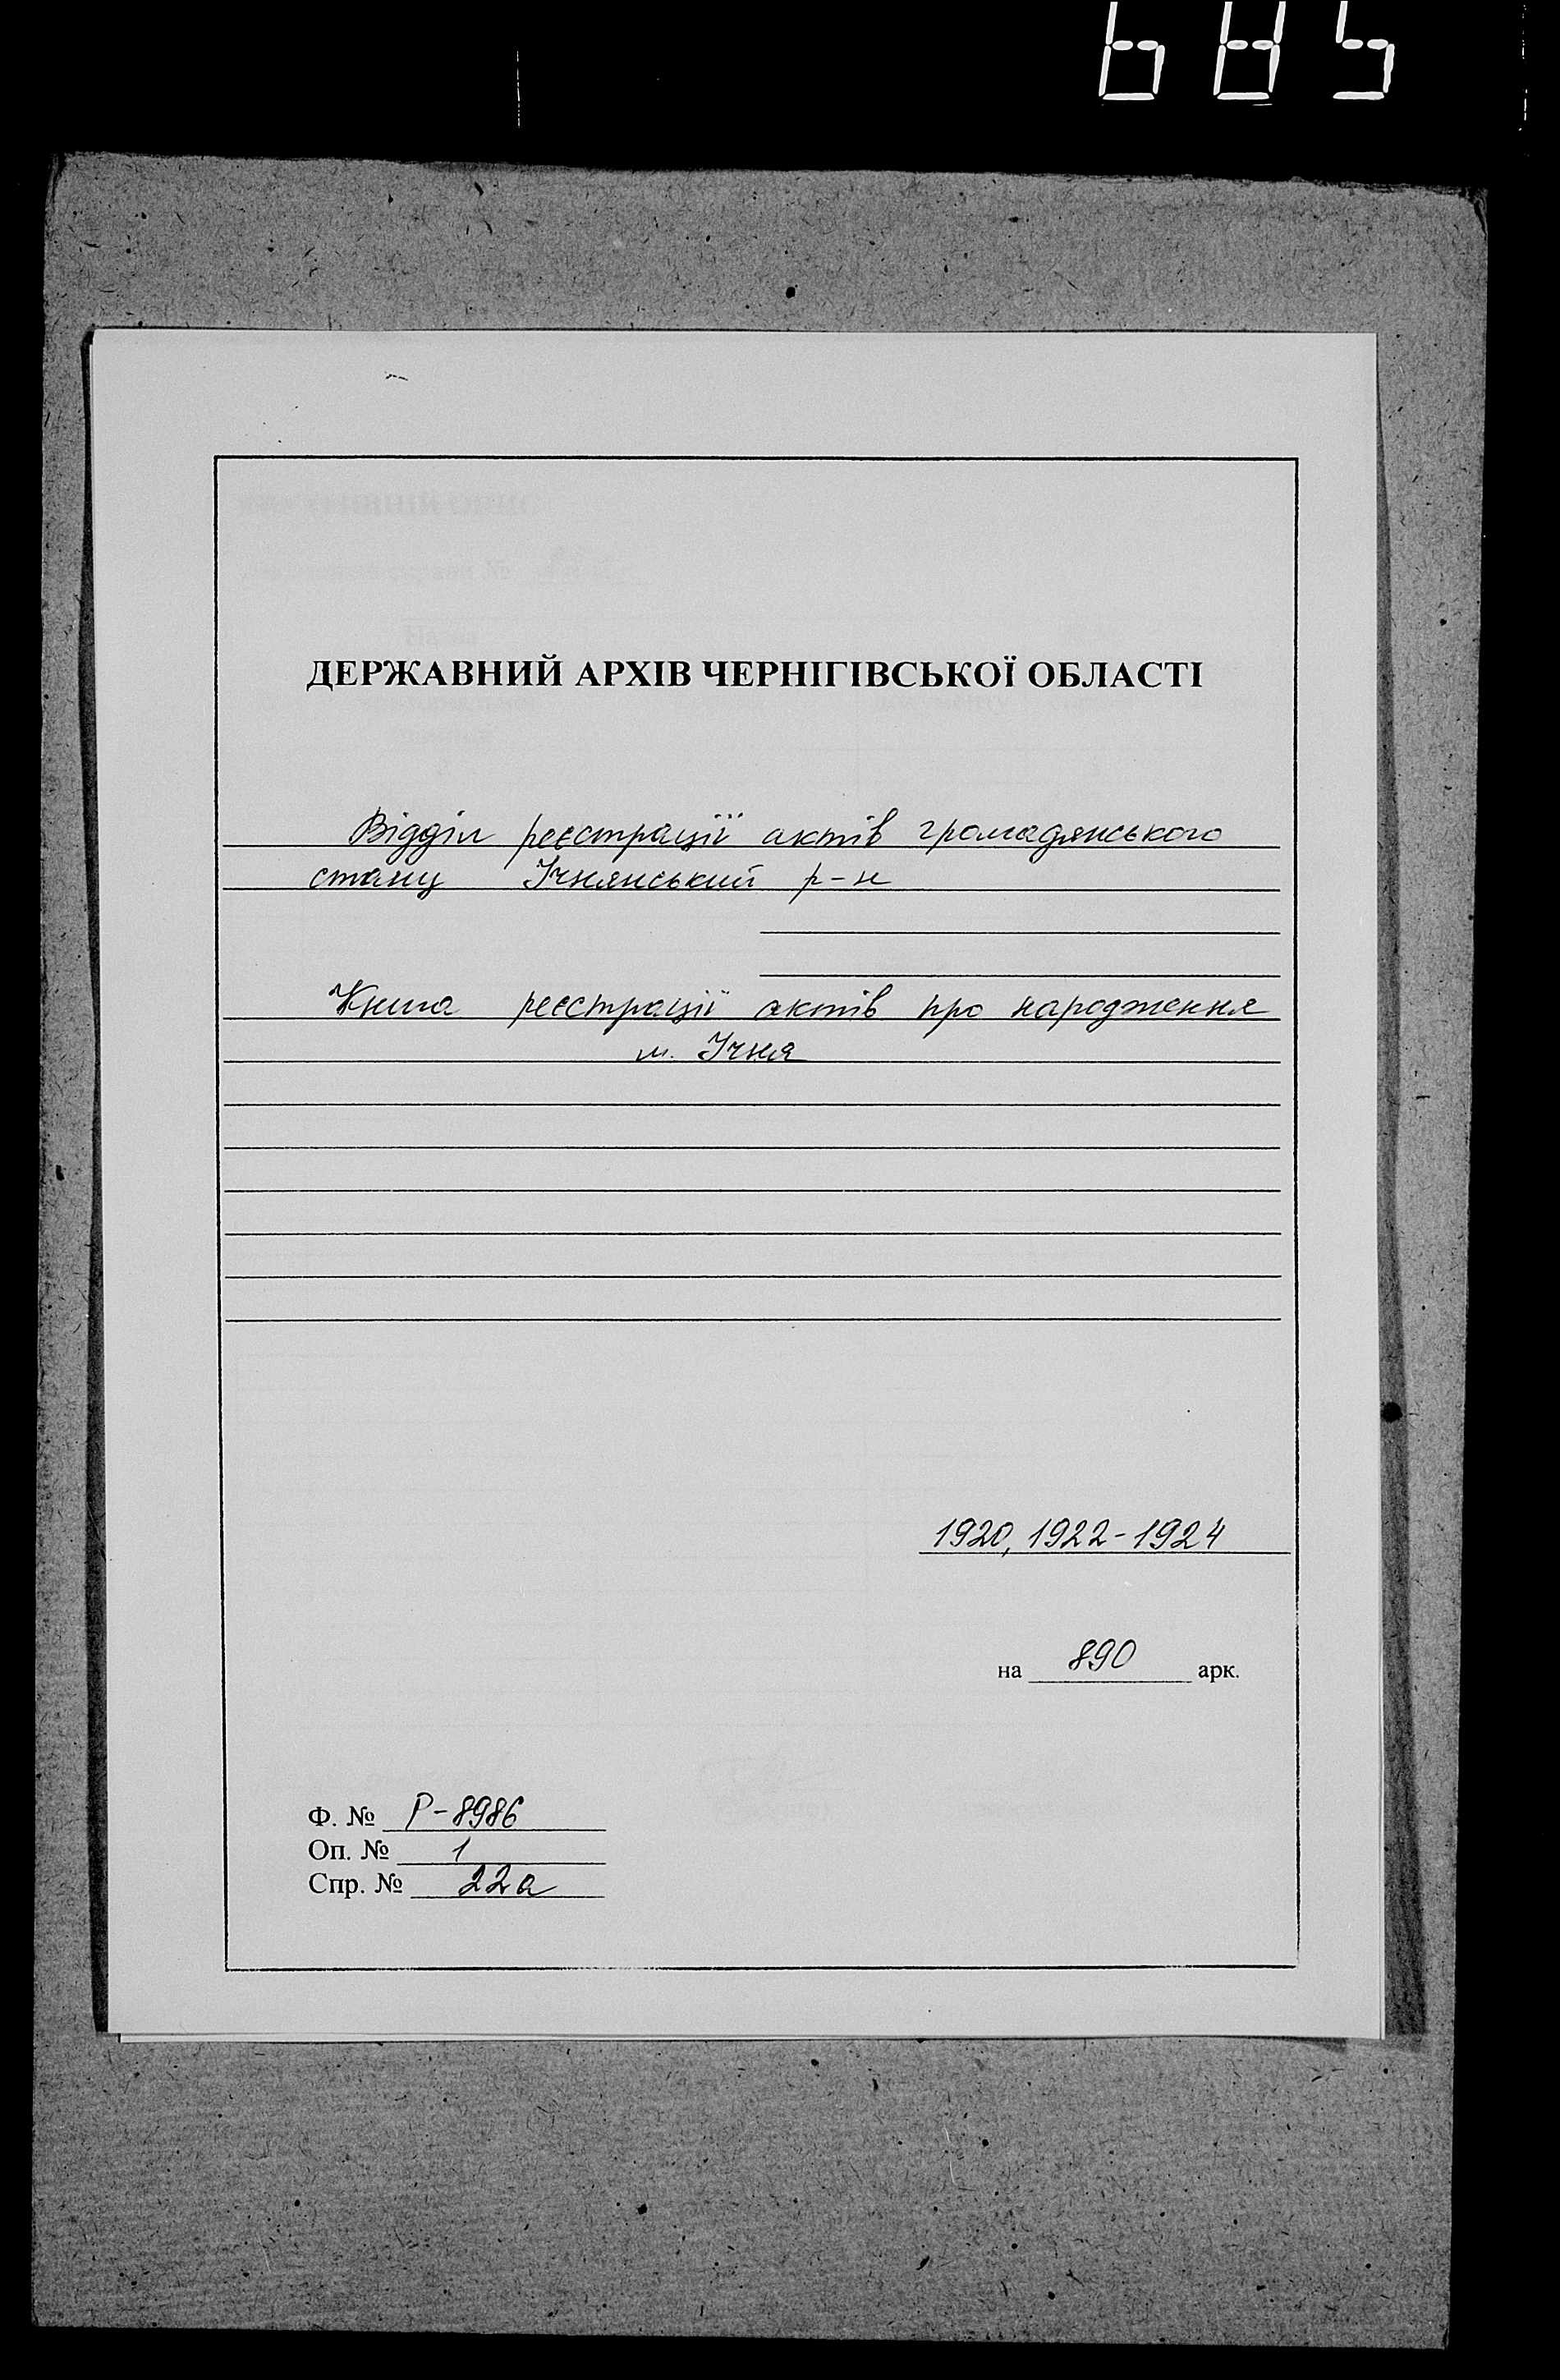 ДЕРЖАВНИЙ АРХІВ ЧЕРНІГІВСЬКОЇ ОБЛАСТІ
Відділ реєстрації актів громадянського
стану Ічнянський р-н
Книга реєстрації актів про народження
м. Ічня
1920, 1922-1924
на 890 арк.
Ф. № Р-8986
Оп. № 1
Спр. № 22а